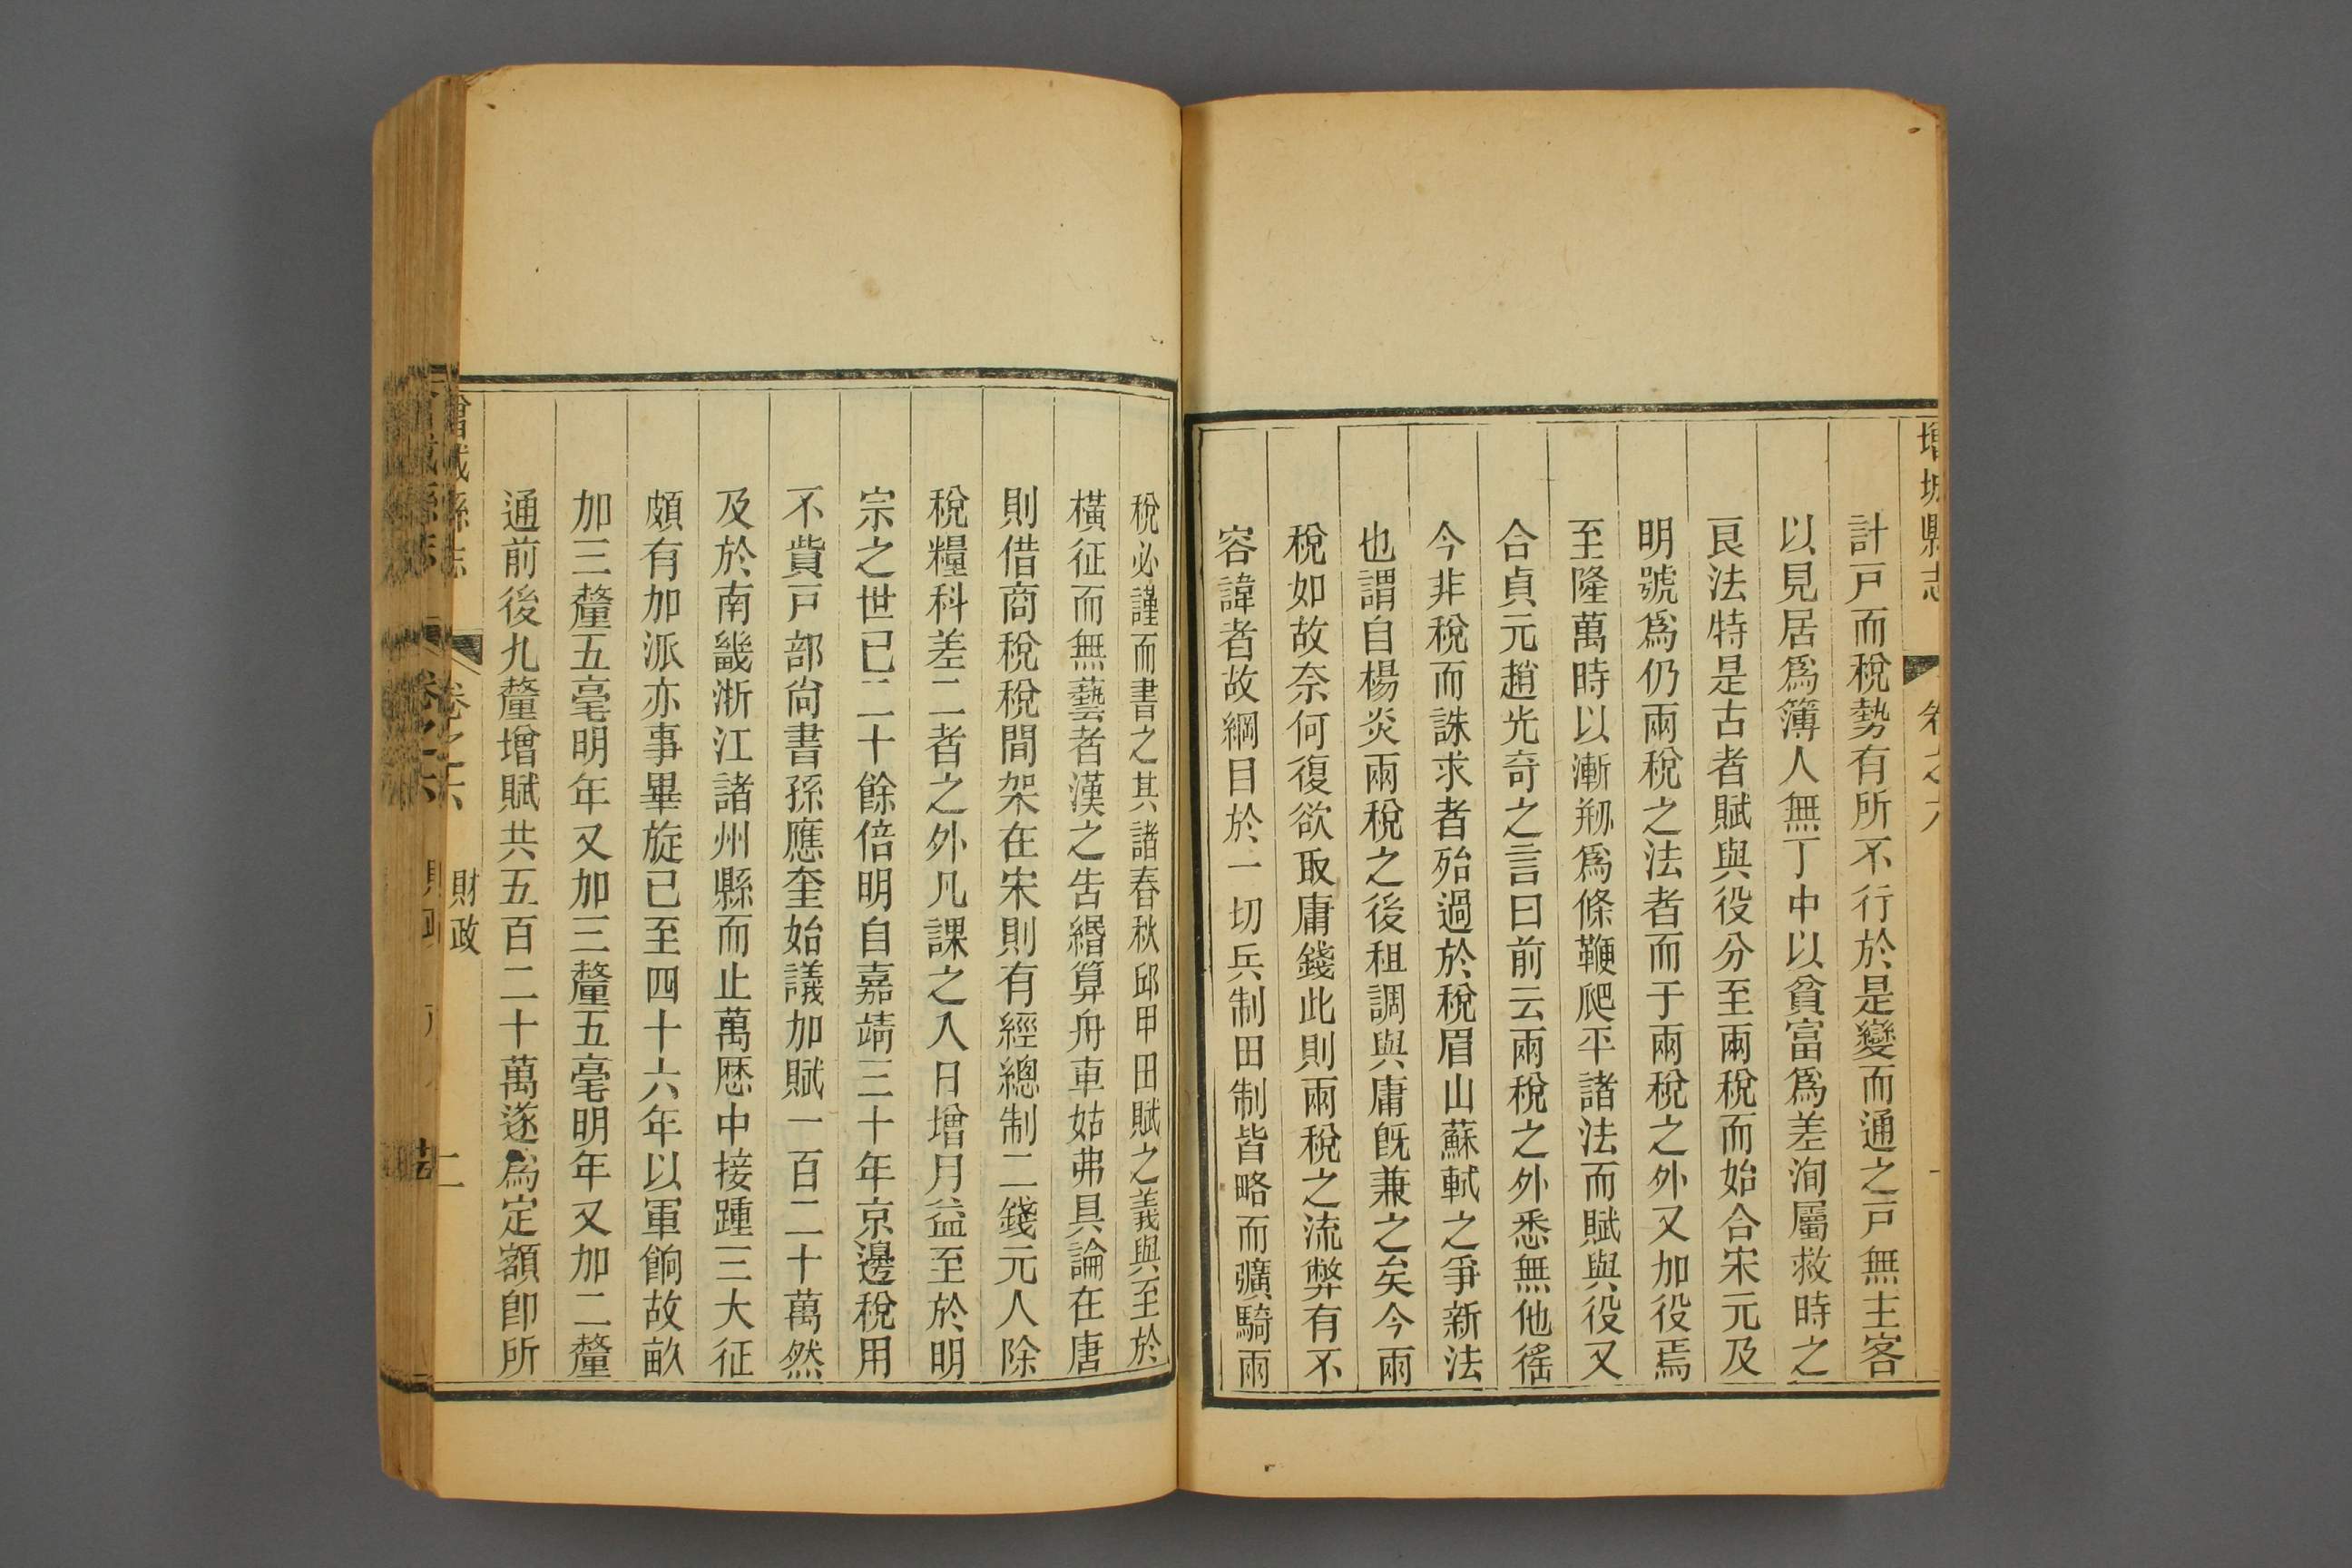 增城縣志 卷之六
計戸而稅勢有所不行於是變而通之戸無主客
以見居爲簿人無丁中以貧富爲差洵屬救時之
良法特是古者賦與役分至兩稅而始合宋元及
明號爲仍兩稅之法者而于兩稅之外又加役焉
至隆萬時以漸剏爲條鞭爬平諸法而賦與役又
合貞元趙光奇之言曰前云兩稅之外悉無他徭
今非稅而誅求者殆過於稅眉山蘇軾之爭新法
也謂自楊炎兩稅之後租調與庸旣兼之矣今兩
稅如故奈何復欲取庸錢此則兩稅之流弊有不
容諱者故綱目於一切兵制田制皆略而彍騎兩
稅必謹而書之其諸春秋邱甲田賦之義與至於
橫征而無藝者漢之吿緡算舟車姑弗具論在唐
則借商稅稅間架在宋則有經總制二錢元人除
稅糧科差二者之外凡課之入日增月益至於明
宗之世已二十餘倍明自嘉靖三十年京邊稅用
不貲戸部尙書孫應奎始議加賦一百二十萬然
及於南畿浙江諸州縣而止萬厯中接踵三大征
頗有加派亦事畢旋已至四十六年以軍餉故畝
加三釐五毫明年又加三釐五毫明年又加二釐
通前後九釐增賦共五百二十萬遂爲定額卽所
增城縣志 卷之六 財政 二